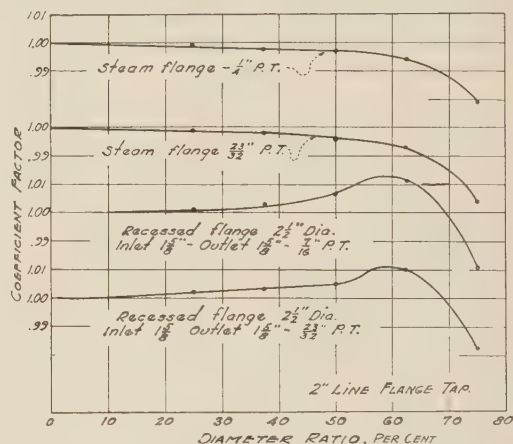 1.01
1.00
.99
Steam flange - 1/4" P.T.
1.00
.99
Steam flange 23/32" P.T.
1.01
1.00
.99
Recessed flange 2 1/2" Dia.
Inlet 1 5/8" - Outlet 1 5/8" - 7/16" P.T.
1.01
1.00
.99
Recessed flange 2 1/2" Dia.
Inlet 1 5/8" Outlet 1 5/8" - 23/32" P.T.
2" LINE FLANGE TAP.
COEFFICIENT FACTOR
0 10 20 30 40 50 60 70 80
DIAMETER RATIO, PER CENT